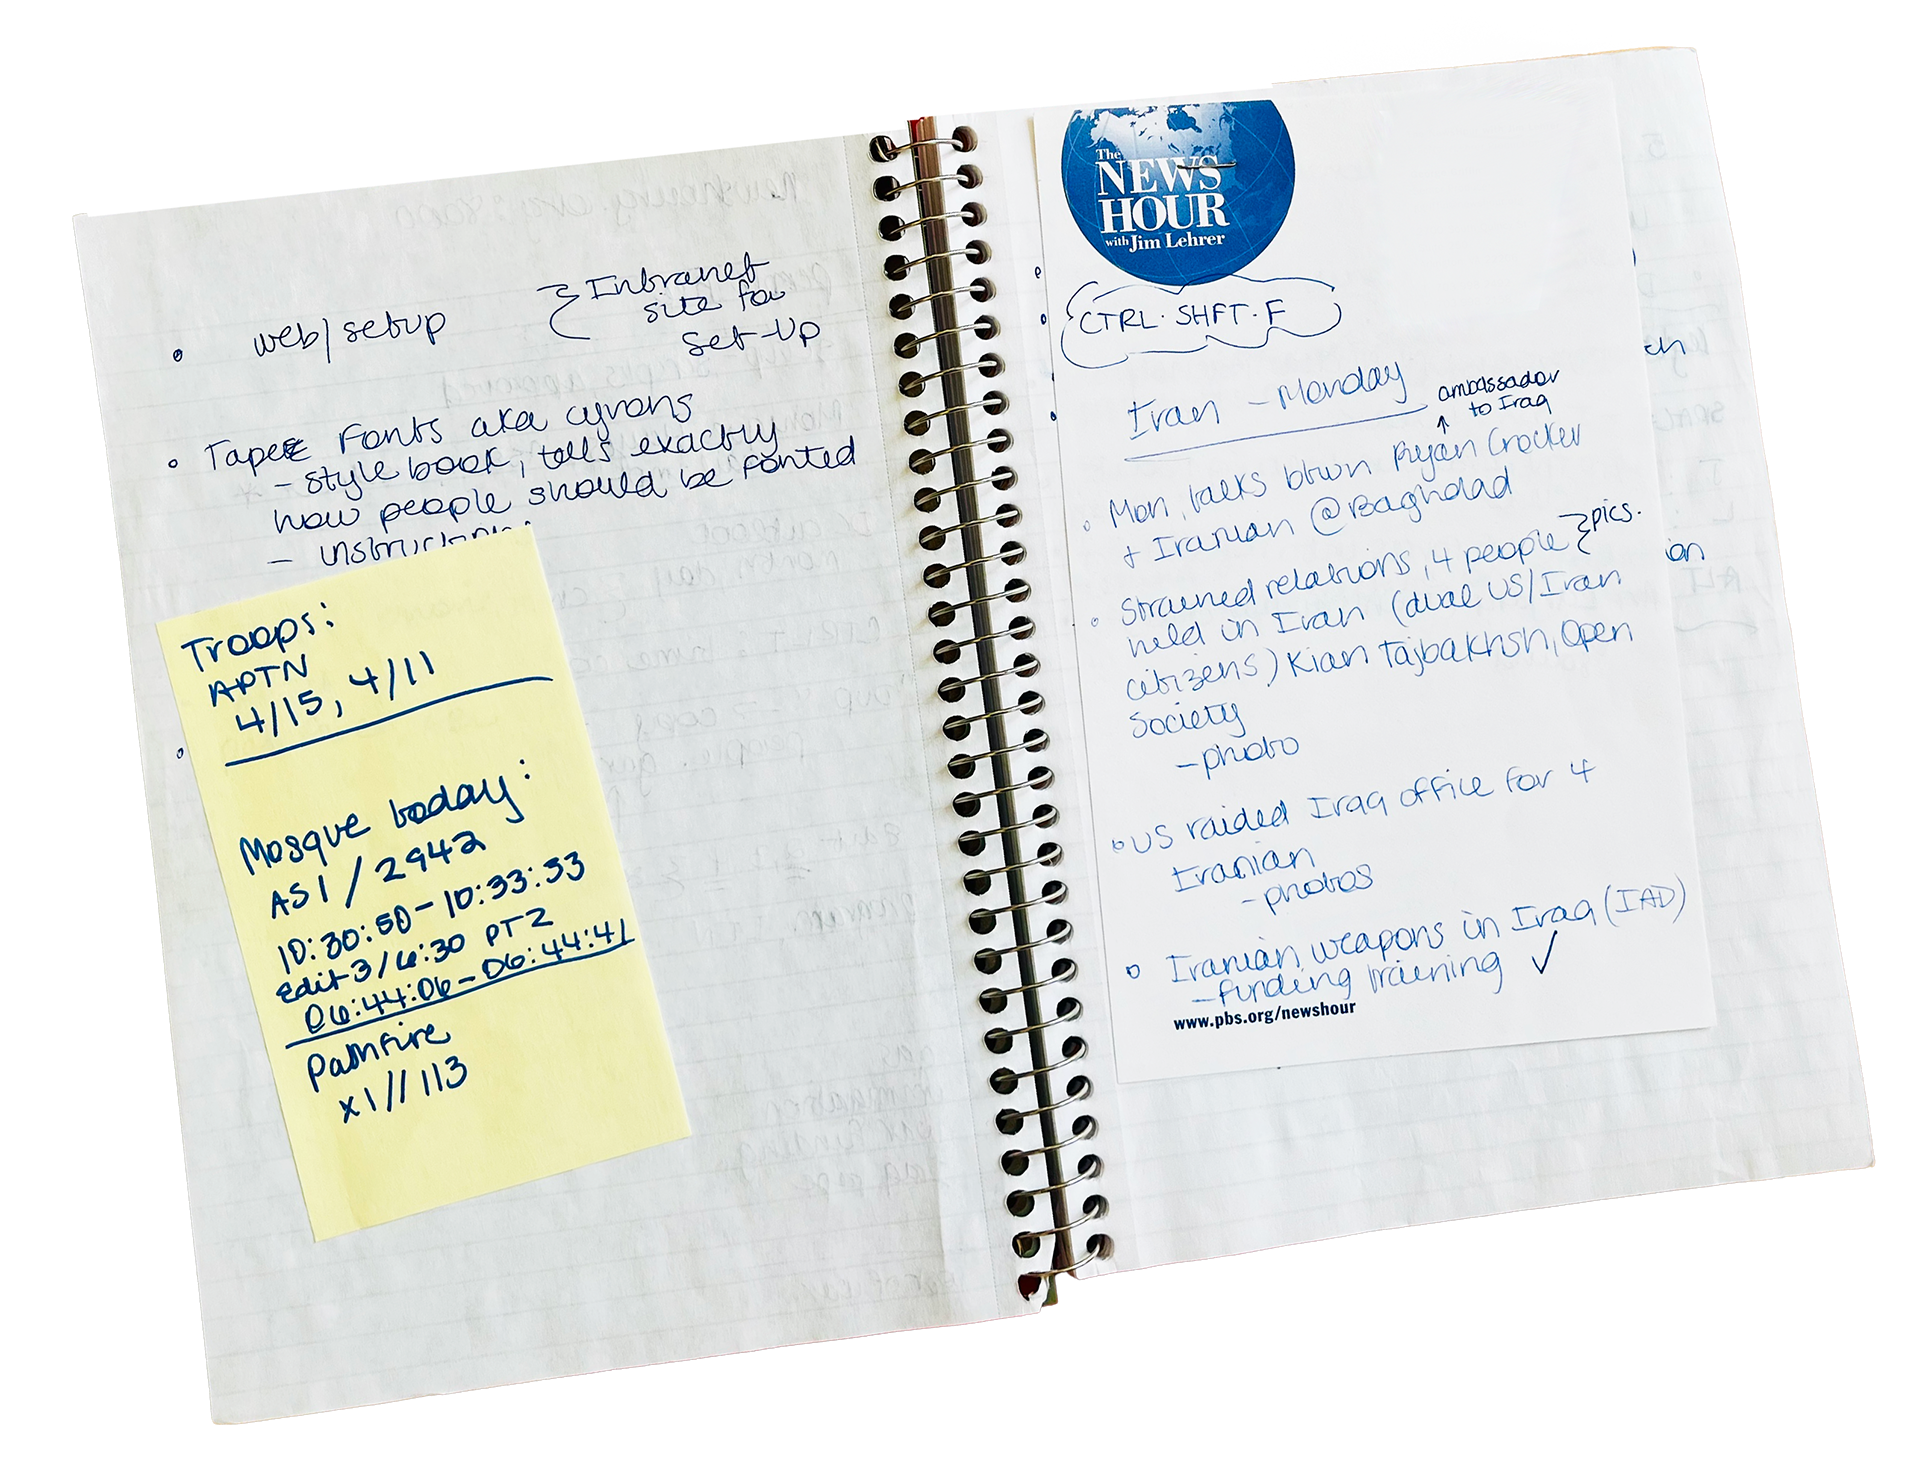 • web/setup
Intranet
site for
Set-Up
• Tape Fonts aka cyrons
- style book, tells exactly
how people should be fonted
-
Troops:
APTN
4/15, 4/11
Mosque today:
AS1/2942
10:30:50-10:33:33
Edit3/6:30 PT2
06:44:06-06:44:41
Pathfire
x1//113
The
NEWS
HOUR
with Jim Lehrer
CTRL·SHFT·F
Iran - Monday
ambassador
to Iraq
• Mon, talks btwn Ryan Crocker
+ Iranian @Baghdad
• Strained relations, 4 people } pics.
held in Iran (dual US/Iran
citizens) Kian Tajbakhsh, Open
Society
- photo
• US raided Iraq office for 4
Iranian
- photos
• Iranian weapons in Iraq (IAD)
- funding training ✓
www.pbs.org/newshour